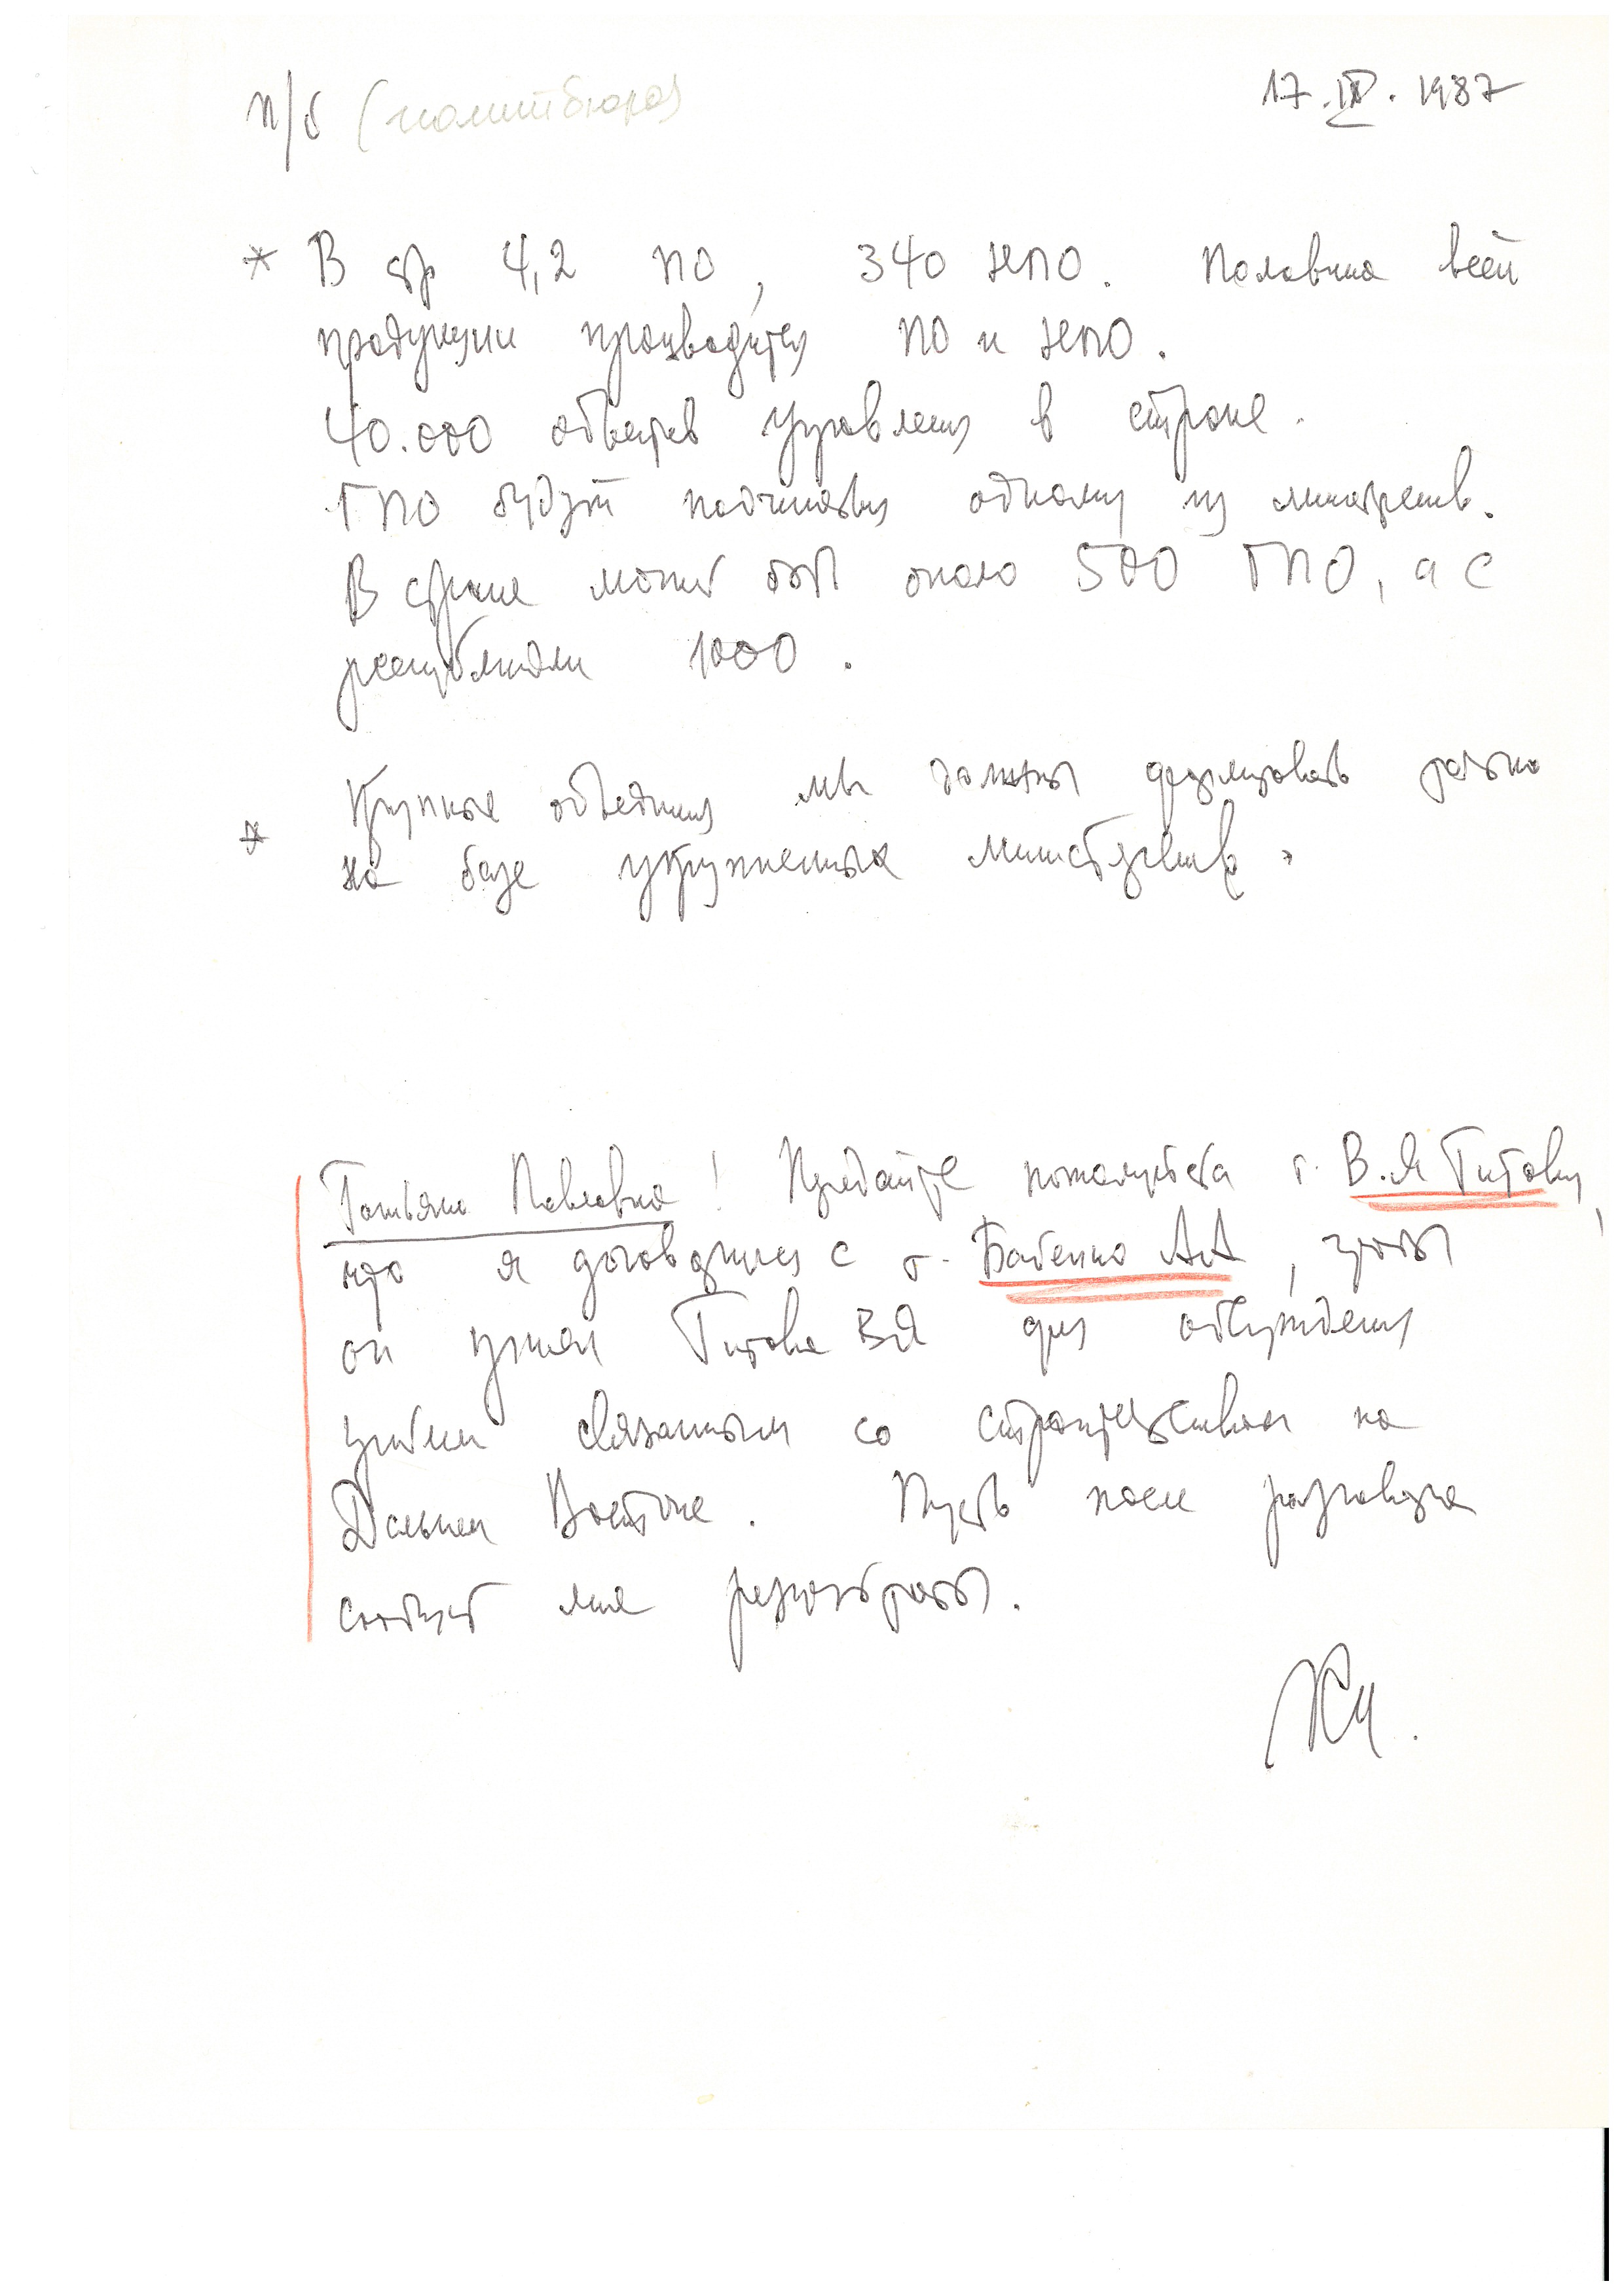 п/б (политбюро) 17.IX.1987
* В стр 4,2 ПО, 340 НПО. Половина всей
продукции производится ПО и НПО.
40.000 объектов управления в стране.
ГПО будут подчиняться одному из министерств.
В стране может быть около 500 ГПО, а с
республиками 1000.
Крупные объединения мы должны формировать только
* на базе укрупненных министерств.
Татьяна Павловна! Передайте пожалуйста т. В.Я Титову,
что я договорился с т. Бабенко АА, чтобы
он принял Титова ВЯ для обсуждения
связанным со строительством на
Дальнем Востоке. Пусть после разговора
сообщит мне результаты.